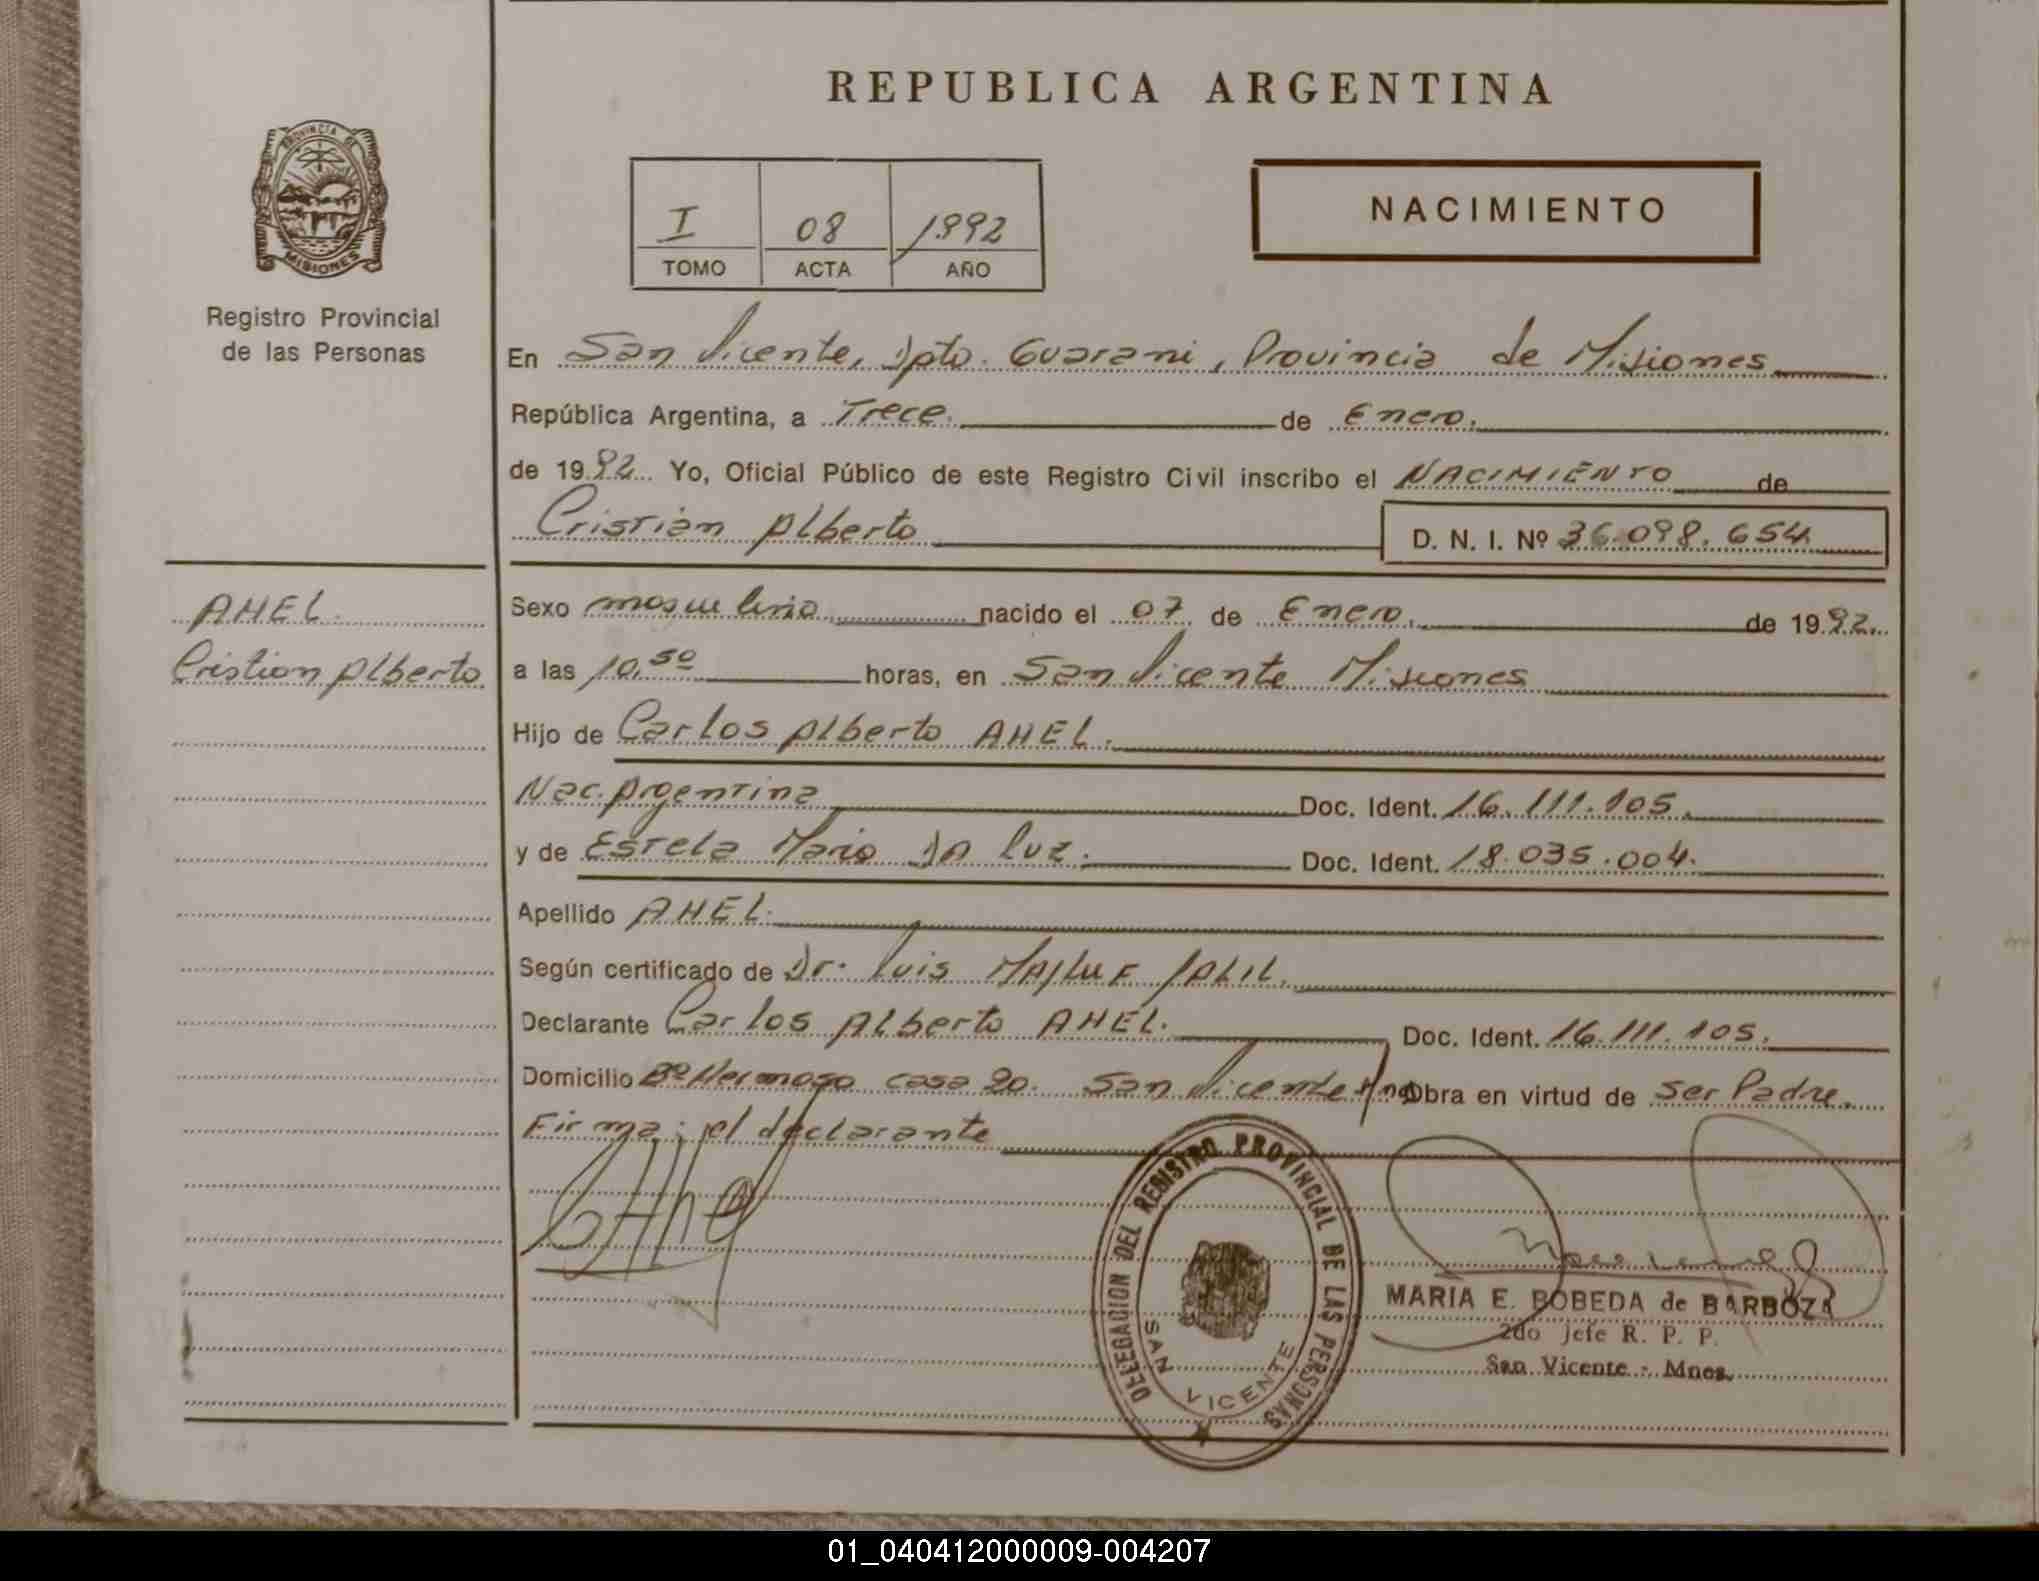 REPUBLICA ARGENTINA
PROVINCIA DE
MISIONES
Registro Provincial
de las Personas
I 08 1992
TOMO ACTA AÑO
NACIMIENTO
En San Vicente, Dpto. Guarani, Provincia de Misiones
República Argentina, a Trece. de Enero.
de 1992 Yo, Oficial Público de este Registro Civil inscribo el NACIMIENTO de
Cristian Alberto D. N. I. Nº 36.098.654
AHEL.
Cristian Alberto
Sexo masculino nacido el 07 de Enero. de 1992.
a las 10,50 horas, en San Vicente Misiones
Hijo de Carlos Alberto AHEL.
Nac. Argentina Doc. Ident. 16.111.105.
y de Estela Maria DA luz. Doc. Ident. 18.035.004.
Apellido AHEL.
Según certificado de Dr. Luis JALIL.
Declarante Carlos Alberto AHEL. Doc. Ident. 16.111.105.
Domicilio Bº Hermoso casa 20. San Vicente Mnes Obra en virtud de ser Padre.
Firma: el declarante
DELEGACION DEL REGISTRO PROVINCIAL DE LAS PERSONAS
SAN VICENTE
MARIA E. BOBEDA de BARBOZA
2do Jefe R. P. P.
San Vicente - Mnes.
01_040412000009-004207